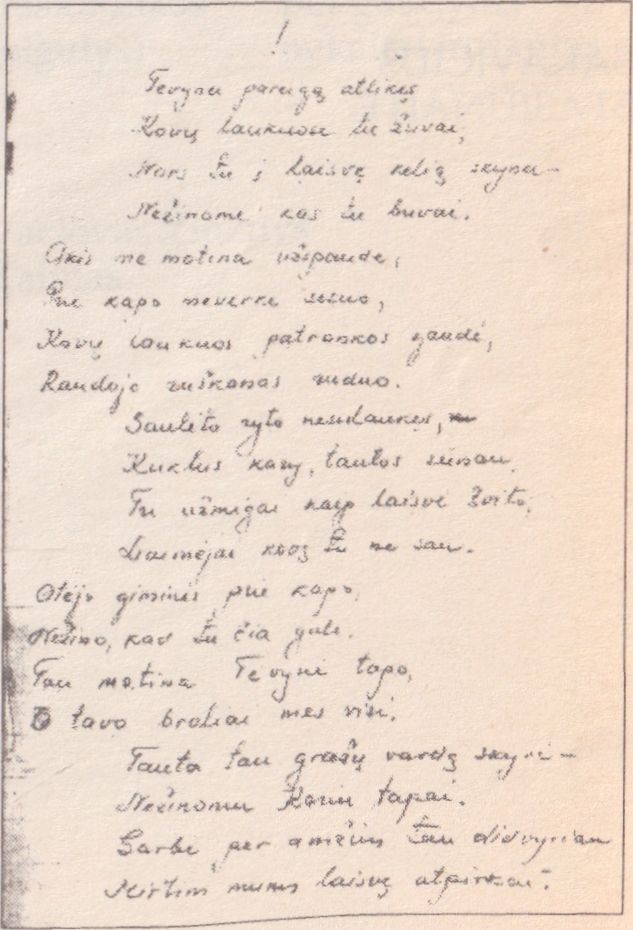 !
Tėvynei pareigą atlikęs
Kovų laukuose tu žuvai,
Nors tu į laisvę kelią skynei –
Nežinome kas tu buvai.
Akis ne motina užspaudė,
Prie kapo neverkė sesuo,
Kovų laukuos patrankos gaudė,
Raudojo rūškanas ruduo.
Saulėto ryto nesulaukęs,
Kuklus kary, tautos sūnau,
Tu užmigai kaip laisvė švito,
Laimėjai kovą tu ne sau.
Atėjo giminės prie kapo,
Nežino, kad tu čia guli.
Tau motina Tėvynė tapo,
O tavo broliai mes visi.
Tauta tau gražų vardą skyrė –
Nežinomu Kariu tapai.
Garbė per amžius Tau didvyriau
Mirtim mums laisvę atpirkai.